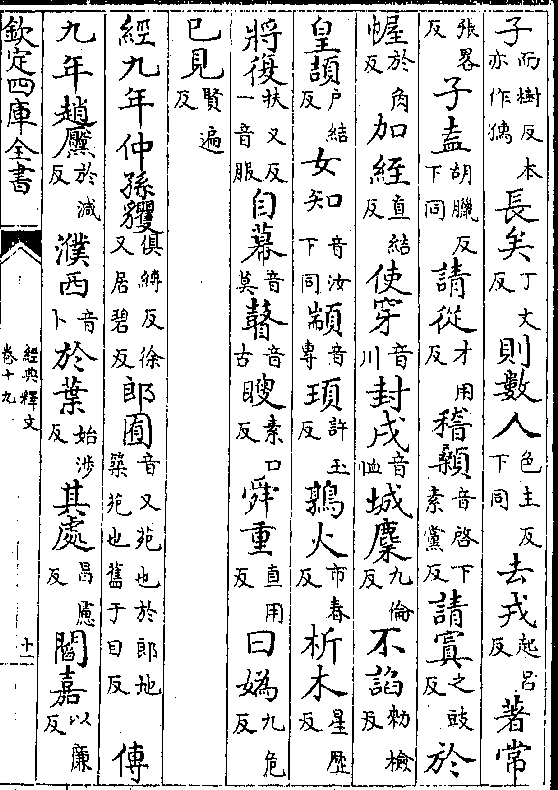 子而樹反本亦作孺長矣丁丈反則數人色主反下同去戎起呂反著常
張畧反子盍胡臘反下同請從才用反稽顙音啓下素黨反請寘之豉反於
幄於角反加絰直結反使穿音川封戌音恤城麇九倫反不諂勑檢反
皇頡戶結反女知音汝下同顓音專頊許玉反鶉火市春反析木星歷反
將復扶又反一音服自幕音莫瞽音古瞍素口反舜重直用反曰嬀九危反
巳見賢遍反
經九年仲孫貜俱縛反徐又居碧反郎囿音又苑也於郎地築苑也舊于目反 傳
九年趙黶於減反濮西音卜於葉始涉反其處昌慮反閻嘉以廉反
欽定四庫全書 經典釋文 卷十九 十一